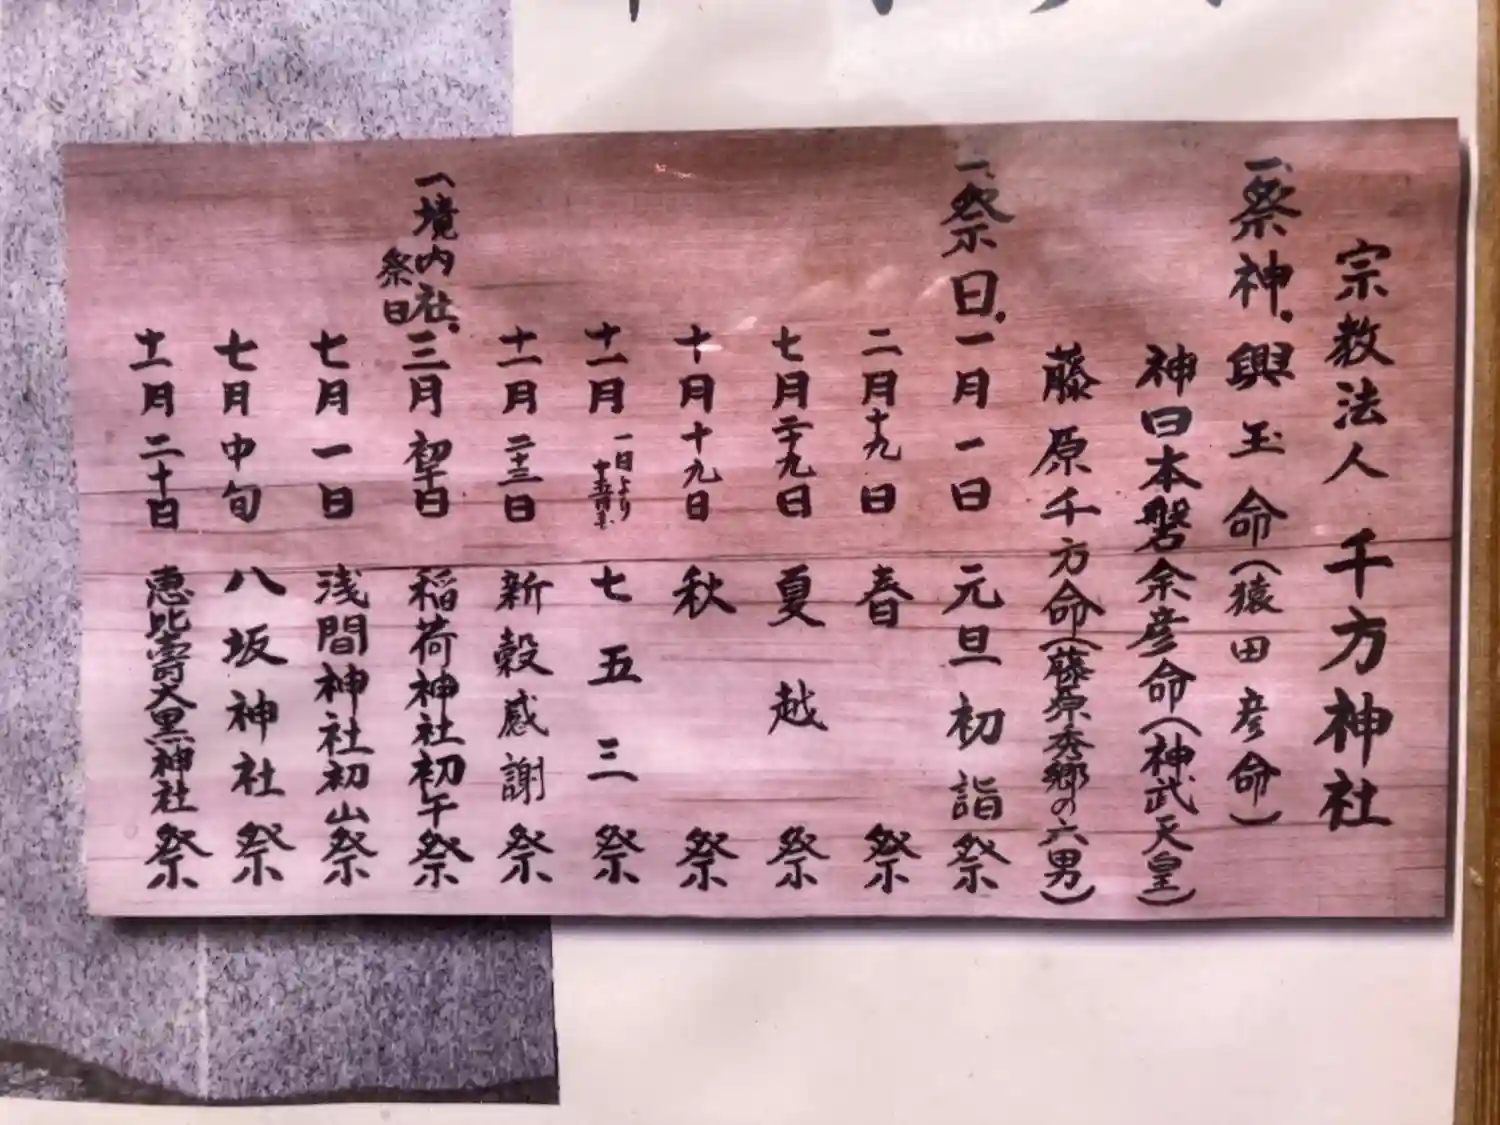 宗教法人 千方神社
一、祭神・興玉命(猿田彦命)
神日本磐余彦命(神武天皇)
藤原千方命(藤原秀郷の六男)
一、祭日・一月一日 元旦初詣祭
二月十九日 春祭
七月二十九日 夏越祭
十月十九日 秋祭
十一月 一日より十五日まで 七五三祭
十一月二十三日 新穀感謝祭
一、境内社・祭日 三月初午日 稲荷神社初午祭
七月一日 浅間神社初山祭
七月中旬 八坂神社祭
十一月二十日 恵比寿大黒神社祭